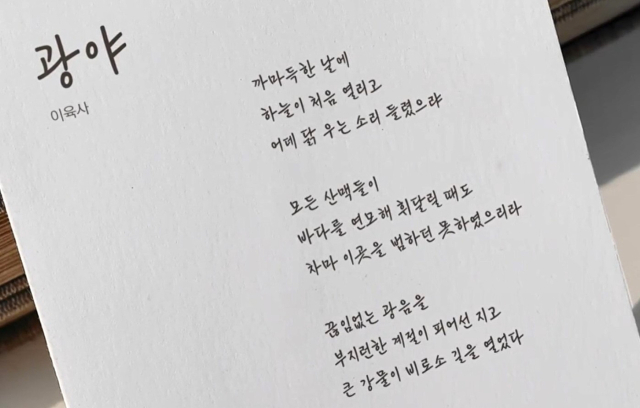 광야
이육사
까마득한 날에
하늘이 처음 열리고
어데 닭 우는 소리 들렸으랴
모든 산맥들이
바다를 연모해 휘달릴 때도
차마 이곳을 범하던 못하였으리라
끊임없는 광음을
부지런한 계절이 피어선 지고
큰 강물이 비로소 길을 열었다